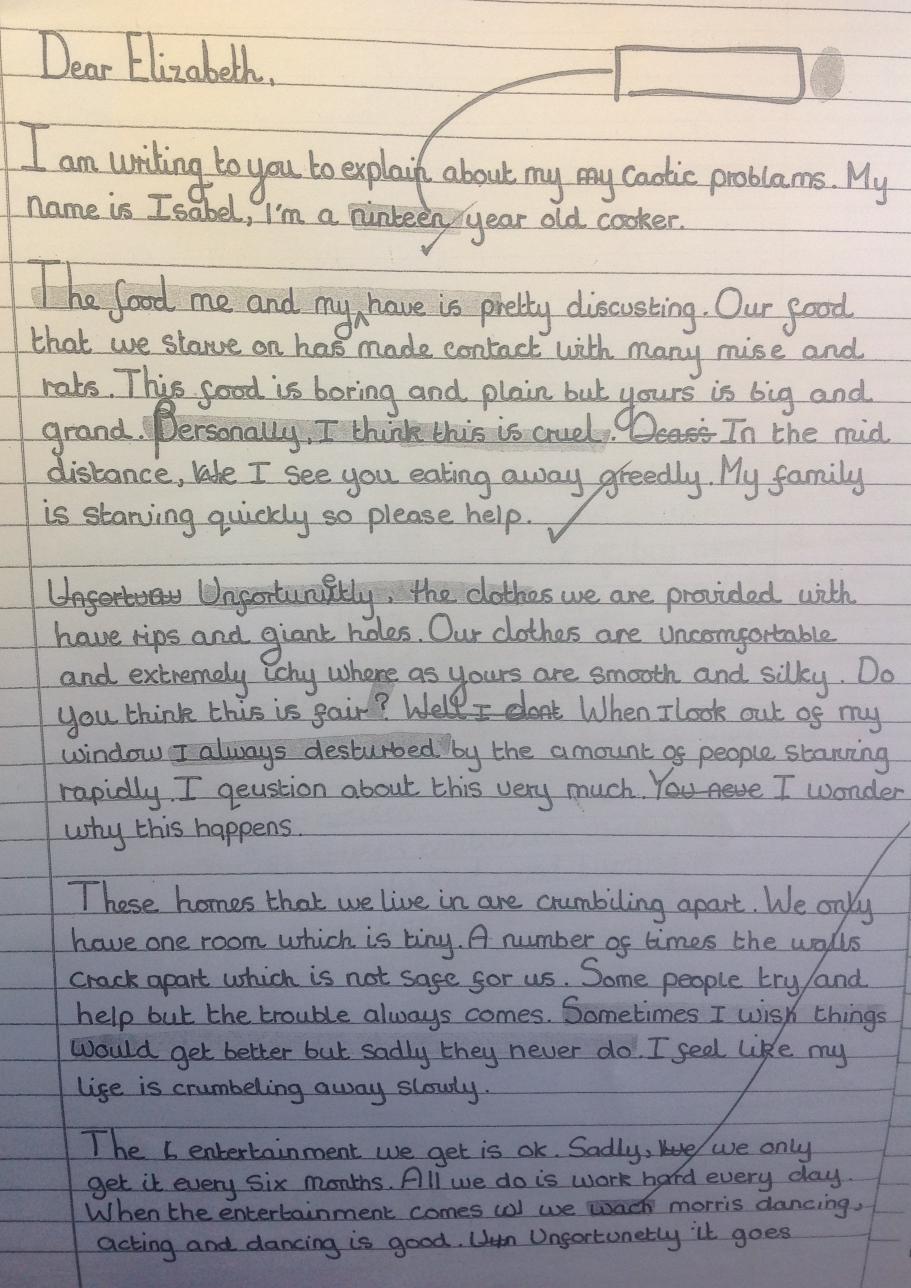 Dear Elizabeth,
I am writing to you to explain about my my Caotic problams. My
name is Isabel, I'm a ninteen year old cooker.
The food me and my have is pretty discusting. Our food
that we starve on has made contact with many mise and
rats. This food is boring and plain but yours is big and
grand. Personally, I think this is cruel. In the mid
distance, I see you eating away greedly. My family
is starving quickly so please help.
Unfortunetly, the clothes we are provided with
have rips and giant holes. Our clothes are uncomfortable
and extremely ichy where as yours are smooth and silky. Do
you think this is fair? Well I dont When I look out of my
window I always desturbed by the amount of people starving
rapidly. I qeustion about this very much. You neve I wonder
why this happens.
These homes that we live in are crumbiling apart. We only
have one room which is tiny. A number of times the walls
crack apart which is not safe for us. Some people try and
help but the trouble always comes. Sometimes I wish things
would get better but sadly they never do. I feel like my
life is crumbeling away slowly.
The entertainment we get is ok. Sadly, we only
get it every six months. All we do is work hard every day.
When the entertainment comes we wach morris dancing,
acting and dancing is good. Unfortunetly it goes